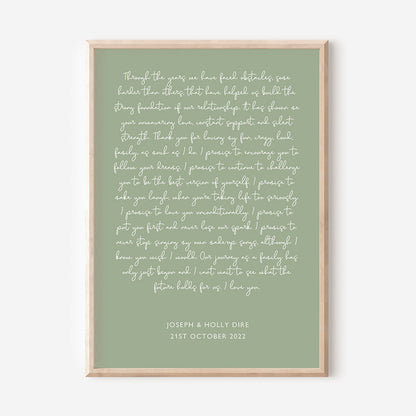 Through the years, we have faced obstacles, some
harder than others, that have helped us build the
strong foundation of our relationship. It has shown me
your unwavering love, constant support and silent
strength. Thank you for loving my fun, crazy, loud
family, as much as I do. I promise to encourage you to
follow your dreams, I promise to continue to challenge
you to be the best version of yourself. I promise to
make you laugh, when you're taking life too seriously.
I promise to love you unconditionally. I promise to
put you first and never lose our spark. I promise to
never stop singing my own made-up songs, although I
know you wish I would. Our journey as a family has
only just begun and I can't wait to see what the
future holds for us. I love you.
JOSEPH & HOLLY DIRE
21ST OCTOBER 2022